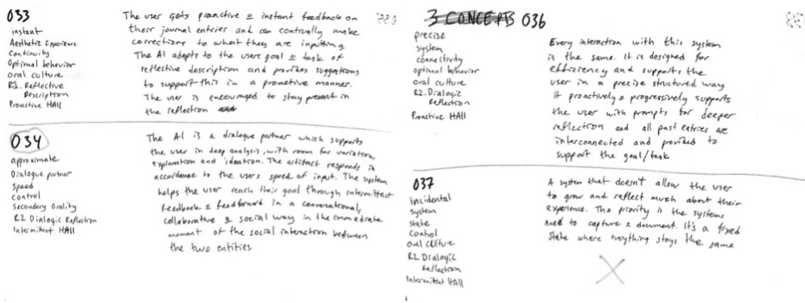 033
instant
Aesthetic Experience
Continuity
Optimal behavior
oral culture
R1. Reflective
Description
Proactive HAII
The user gets proactive & instant feedback on
their journal entries and can continually make
corrections to what they are inputting.
The AI adapts to the users goal & task of
reflective description and provides suggestions
to support this in a proactive manner.
The user is encouraged to stay present in
the reflection
034
approximate
Dialogue partner
Speed
Control
Secondary Orality
R2 Dialogic Reflection
Intermittent HAII
The AI is a dialogue partner which supports
the user in deep analysis, with room for variation,
exploration and ideation. The artifact responds in
accordance to the users speed of input. The system
helps the user reach their goal through intermittent
feedback & feedforward in a conversational,
collaborative & social way in the immediate
moment of the social interaction between
the two entities
3 CONCEPTS 036
precise
system
connectivity
optimal behavior
oral culture
R2. Dialogic
Reflection
Proactive HAII
Every interaction with this system
is the same. It is designed for
efficiency and supports the
user in a precise structured way.
It proactively & progressively supports
the user with prompts for deeper
reflection and all past entries are
interconnected and provided to
support the goal/task
037
incidental
system
state
Control
oral culture
R2. Dialogic
Reflection
Intermittent HAII
A system that doesn't allow the user
to grow and reflect much about their
experience. The priority is the systems
need to capture & document. It's a fixed
state where everything stays the same